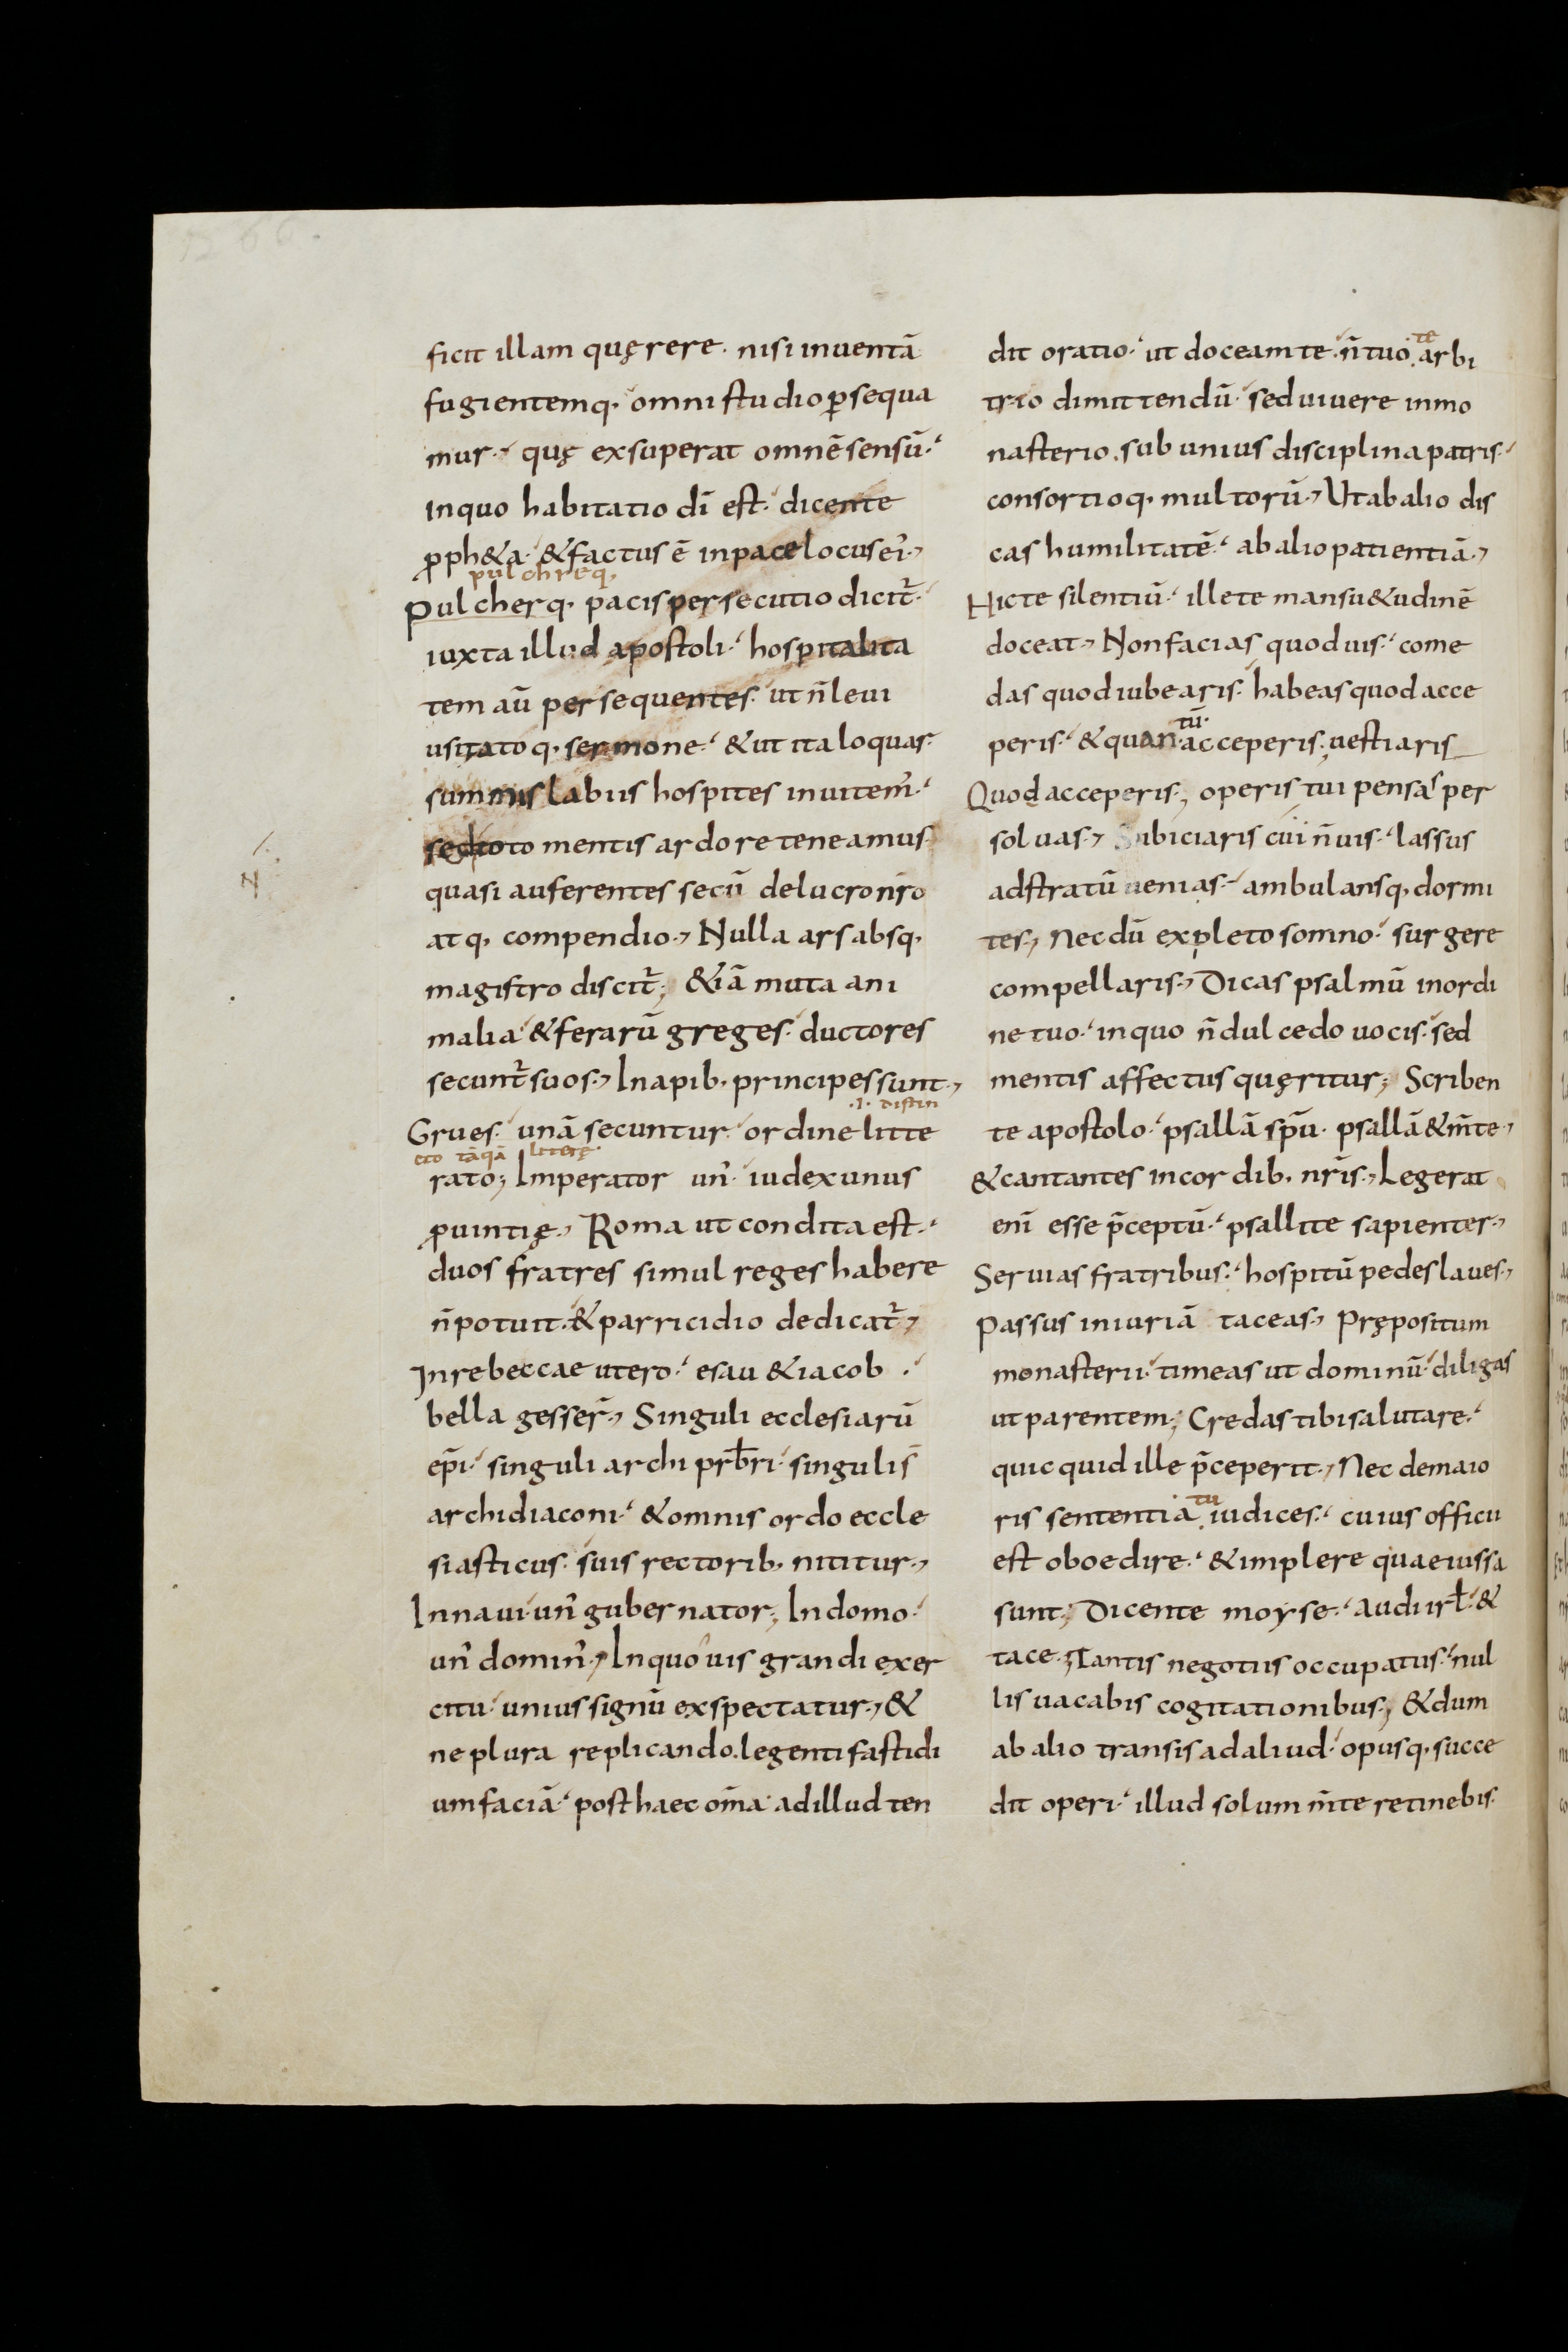 ficit illam quęrere. nisi inuentā
fugientemq, omni studio ꝑsequa
mur., quę exsuperat omnē sensū.
in quo habitatio dī est. dicente
ꝓph&a. & factus ē in pace locus ei᾿.,
pulchreq,
Pulcherq, pacis persecutio dicit᷑.
iuxta illud apostoli. hospitalita
tem aū persequentes. ut n̄ leui
usitatoq, sermone. & ut ita loquar.
summis labiis hospites inuitem᾿.
sed toto mentis ardore teneamus.
N
quasi auferentes secū de lucro nr̄o
atq, compendio., Nulla ars absq,
magistro discit᷑; &iā muta ani
malia & ferarū greges. ductores
secunt᷑ suos., In apib, principes sunt.,
.i. distin
Grues. unā secuntur. ordine litte
cto tāquā litterę
rato; Imperator un᾿. iudex unus
ꝓuintię., Roma ut condita est.
duos fratres simul reges habere
n̄ potuit. & parricidio dedicat᷑.,
In rebeccae utero. esau & iacob.
bella gesser̄., Singuli ecclesiarū
ep̄i. singuli archi prb̄ri. singulis̄
archidiaconi. & omnis ordo eccle
siasticus. suis rectorib, nititur.,
In naui. un᾿ gubernator; In domo.
un᾿ domin᾿., In quouis grandi exer
citu. unius signū exspectatur., &
ne plura replicando. legenti fastidi
um faciā. post haec om̄a. ad illud ten
te
dit oratio. ut doceam te. n̄ tuo. arbi
trio dimittendū. sed uiuere in mo
nasterio. sub unius disciplina patris.
consortioq, multorū., Ut ab alio dis
cas humilitatē. ab alio patientiā.,
Hic te silentiū. ille te mansu&udinē
doceat., Non facias quod uis. come
das quod iubearis. habeas quod acce
tū.
peris. & quan.acceperis. uestiaris
Quod acceperis; operis tui pensa᾿ per
soluas., Subiciaris cui n̄ uis. lassus
ad stratū uenias. ambulansq, dormi
tes., Necdū expleto somno. surgere
compellaris., Dicas psalmū in ordi
ne tuo. in quo n̄ dulcedo uocis. sed
mentis affectus quęritur; Scriben
te apostolo. psallā sp̄u. psallā & m̄te.,
& cantantes in cordib, nr̄is., Legerat
enī esse p̄ceptū. psallite sapienter.,
Seruias fratribus. hospitū pedes laues.,
Passus iniuriā taceas., Prępositum
monasterii. timeas ut dominū. diligas
ut parentem; Credas tibi salutare.
quicquid ille p̄ceperit., Nec de maio
tu
ris sententia iudices. cuius officii
est oboedire. & implere quae iussa
sunt; Dicente moyse. Audi irƚ. &
tace.; Tantis negotiis occupatus. nul
lis uacabis cogitationibus; & dum
ab alio transis ad aliud. opusq, succe
dit operi. illud solum m̄te retinebis.